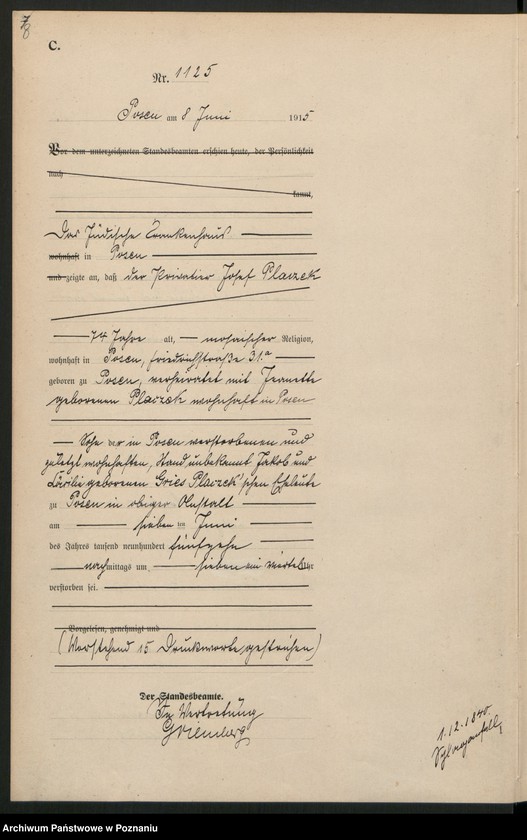 C.
Nr. 1125
Posen am 8 Juni 1915
Vor dem unterzeichneten Standesbeamten erschien heute, der Persönlichkeit
nach
kannt,
Das Jüdische Krankenhaus
wohnhaft in Posen
und zeigte an, daß der Privatier Josef Placzek
74 Jahre alt, mosaischer Religion,
wohnhaft in Posen, Friedrichstraße 31.a
geboren zu Posen, verheiratet mit Jeanette
geborenen Placzek wohnhaft in Posen
Sohn der in Posen verstorbenen und
zuletzt wohnhaften, Stand unbekannt, Jakob und
geborenen Placzek'schen Eheleute
zu Posen in obiger Anstalt
am sieben ten Juni
des Jahres tausend neunhundert fünfzehn
nachmittags um sieben ein viertel Uhr
verstorben sei.
Vorgelesen, genehmigt und
(Vorstehend 15 Druckworte gestrichen)
Der Standesbeamte.
In Vertretung
1.12.1840
Archiwum Państwowe w Poznaniu